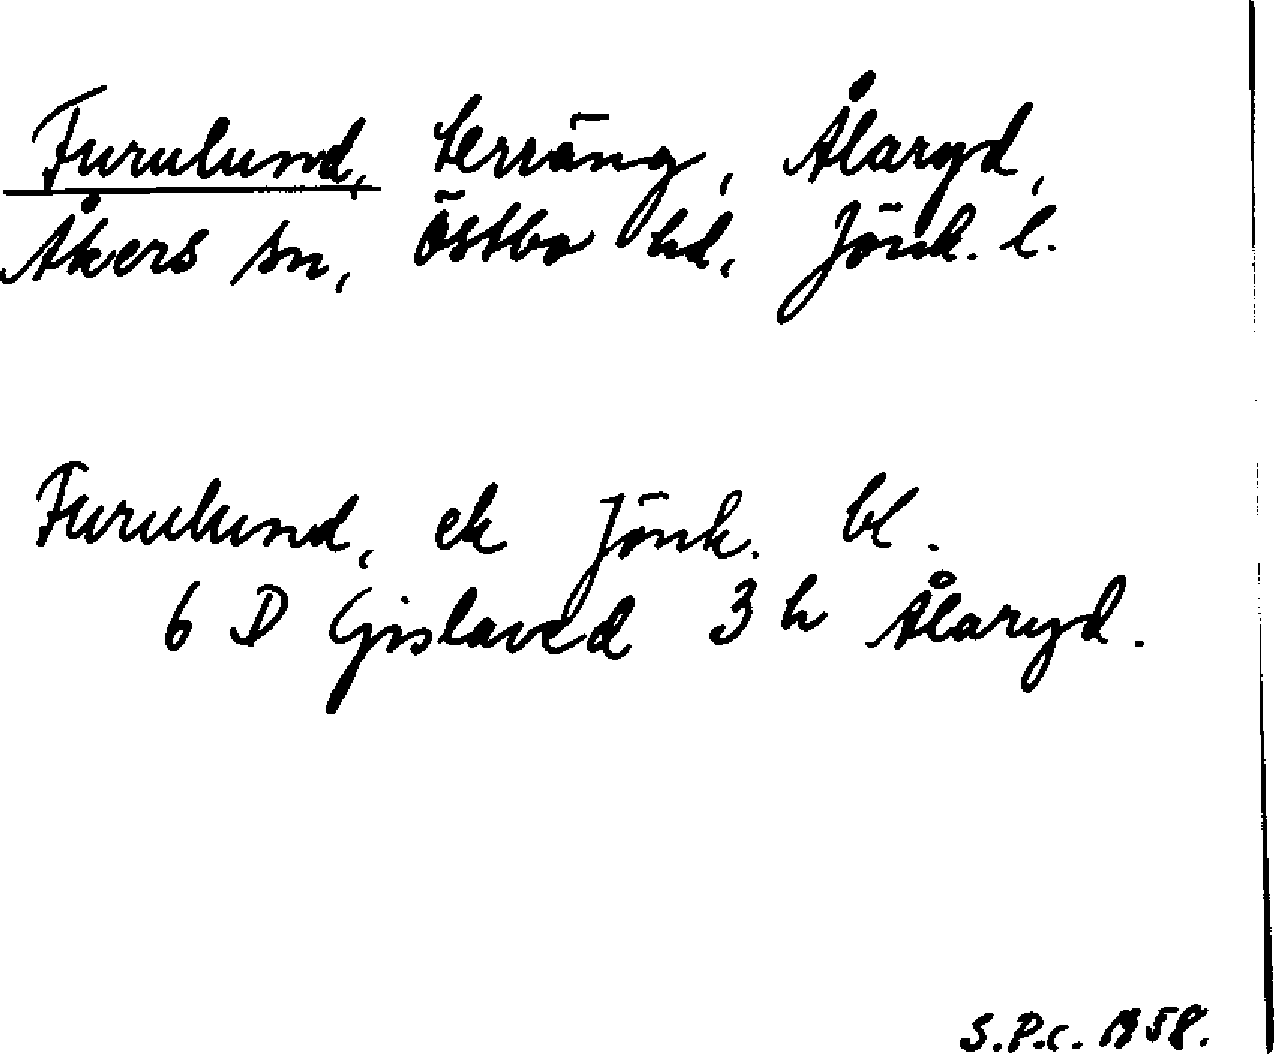 Furulund, terräng, Ålaryd,
Åkers sn, Östbo hd, Jönk. l.
Furulund, ek Jönk. bl.
6 D Gislaved 3 h Ålaryd.
S.P.C. 1958.